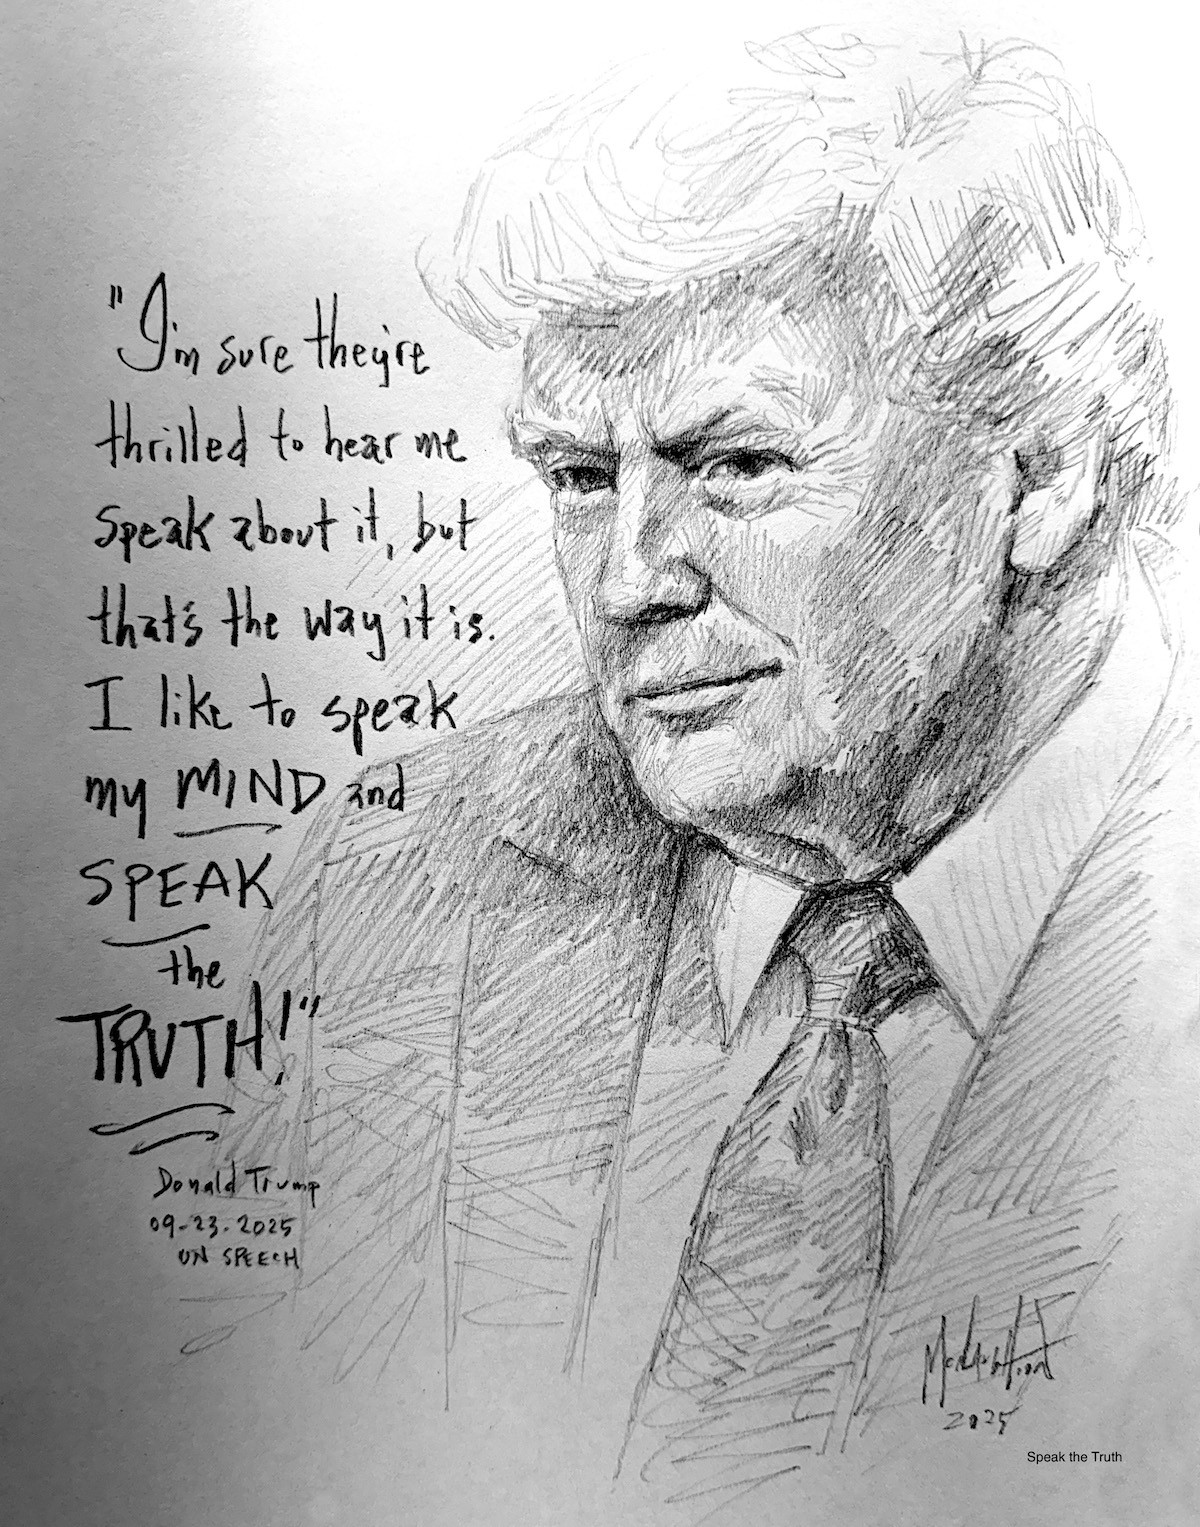 "I'm sure they're
thrilled to hear me
speak about it, but
that's the way it is.
I like to speak
my MIND and
SPEAK
the
TRUTH!"
Donald Trump
09-23-2025
UN SPEECH
2025
Speak the Truth